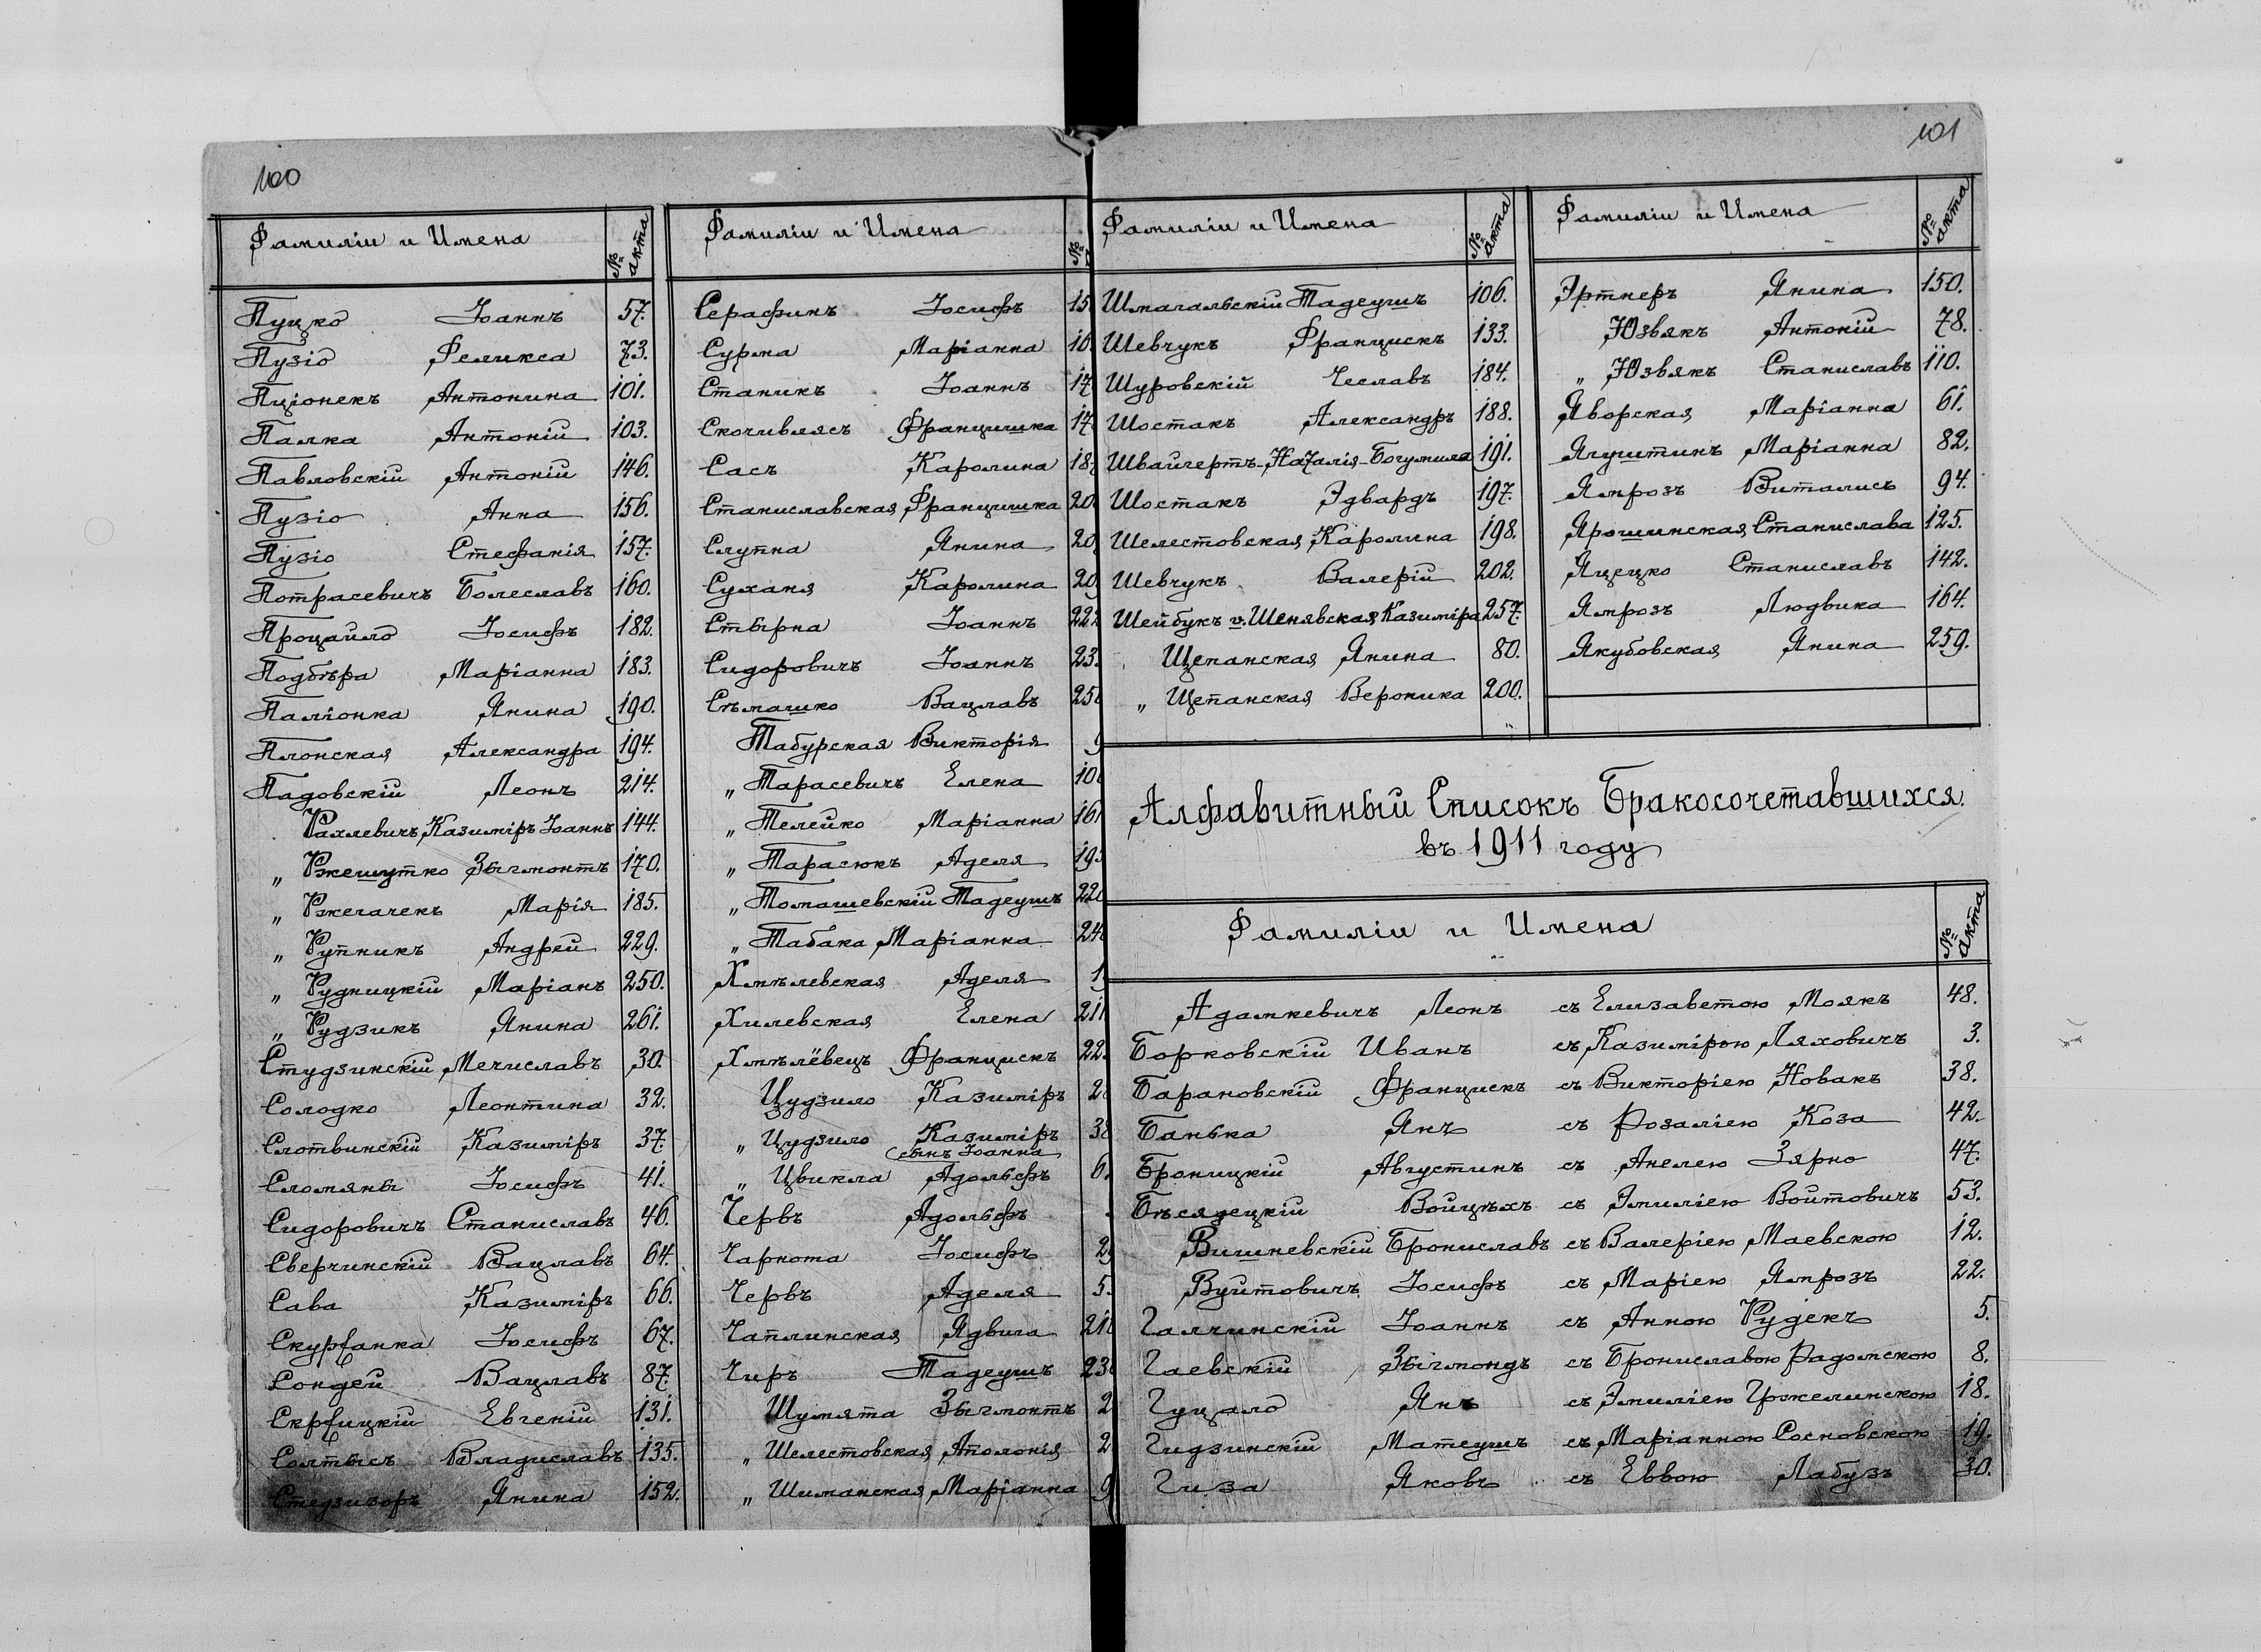 100
Фамиліи и Имена № акта
Пуцко Іоаннъ 57.
Пузіо Феликса 73.
Пціонекъ Антонина 101.
Палка Антоній 103.
Павловскій Антоній 146.
Пузіо Анна 156.
Пузіо Стефанія 157.
Потрасевичъ Болеславъ 160.
Процайло Іосифъ 182.
Подбѣра Маріанна 183.
Паліонка Янина 190.
Плонская Александра 194.
Падовскій Леонъ 214.
Рахлевичъ Казиміръ Іоаннъ 144.
„ Ржешутко Зыгмонтъ 170.
„ Ржегачекъ Марія 185.
„ Рупникъ Андрей 229.
„ Рудницкій Маріанъ 250.
„ Рудзикъ Янина 261.
Студзинскій Мечиславъ 30.
Солодко Леонтина 32.
Слотвинскій Казиміръ 37.
Сломяны Іосифъ 41.
Сидоровичъ Станиславъ 46.
Сверчинскій Вацлавъ 64.
Сава Казиміръ 66.
Скурfанка Іосифъ 67.
Сондей Вацлавъ 87.
Скрfицкій Евгеній 131.
Солтысъ Владиславъ 135.
Стедзизоръ Янина 152.
Фамиліи и Имена №
Серафинъ Іосифъ 15
Сурма Маріанна 16
Станикъ Іоаннъ 17
Скочивлясъ Францишка 17
Сасъ Каролина 18
Станиславская Францишка 20
Слупна Янина 20
Суханя Каролина 20
Стырна Іоаннъ 222
Сидоровичъ Іоаннъ 23
Сѣмашко Вацлавъ 25
Табурская Викторія
„ Тарасевичъ Елена 10
„ Телейко Маріанна 16
„ Тарасюкъ Аделя 19
„ Томашевскій Тадеушъ 22
„ Табака Маріанна 24
Хмѣлевская Аделя 1
Хилевская Елена 211
Хмѣлёвецъ Францискъ 22
Цудзило Казиміръ 2
„ Цудзило Казиміръ 38
сынъ Іоанна
„ Цвикла Адольфъ 6
Червъ Адольфъ
Чарнота Іосифъ 2
Червъ Аделя 5
Чаплинская Ядвига 21
Чиръ Тадеушъ 23
Шумята Зыгмонтъ 2
„ Шелестовская Аполонія 2
„ Шиманская Маріанна 9
101
Фамиліи и Имена № акта
Шмагальскій Тадеушъ 106.
Шевчукъ Францискъ 133.
Шуровскій Чеславъ 184.
Шостакъ Александръ 188.
Швайгертъ-Наталія-Богумила 191.
Шостакъ Эдвардъ 197.
Шелестовская Каролина 198.
Шевчукъ Валерій 202.
Шейбукъ v. Шенявская Казиміра 257.
Щепанская Янина 80.
„ Щепанская Вероника 200.
Фамиліи и Имена № акта
Эртнеръ Янина 150.
Юзвякъ Антоній 78.
„ Юзвякъ Станиславъ 110.
Яворская Маріанна 61.
Ягуштинъ Маріанна 82.
Ямрозъ Виталисъ 94.
Ярошинская Станислава 125.
Яцецко Станиславъ 142.
Ямрозъ Людвика 164.
Якубовская Янина 259.
Алфавитный Списокъ Бракосочетавшихся
въ 1911 году
Фамиліи и Имена № акта
Адамкевичъ Леонъ съ Елизаветою Моякъ 48.
Борковскій Иванъ съ Казимірою Ляховичъ 3.
Барановскій Францискъ съ Викторіею Новакъ 38.
Банька Янъ съ Розаліею Коза 42.
Броницкій Августинъ съ Анелею Зярно 47.
Бѣсядецкій Войцѣхъ съ Эмиліею Войтовичъ 53.
Вишневскій Брониславъ съ Валеріею Маевскою 12.
Вуйтовичъ Іосифъ съ Маріею Ямрозъ 22.
Галчинскій Іоаннъ съ Анною Рудекъ 5.
Гаевскій Зыгмондъ съ Брониславою Радомскою 8.
Гуцало Янъ съ Эмиліею Гржелинскою 18.
Гидзинскій Матеушъ съ Маріанною Сосновскою 19.
Гиза Яковъ съ Еввою Лабузъ 30.